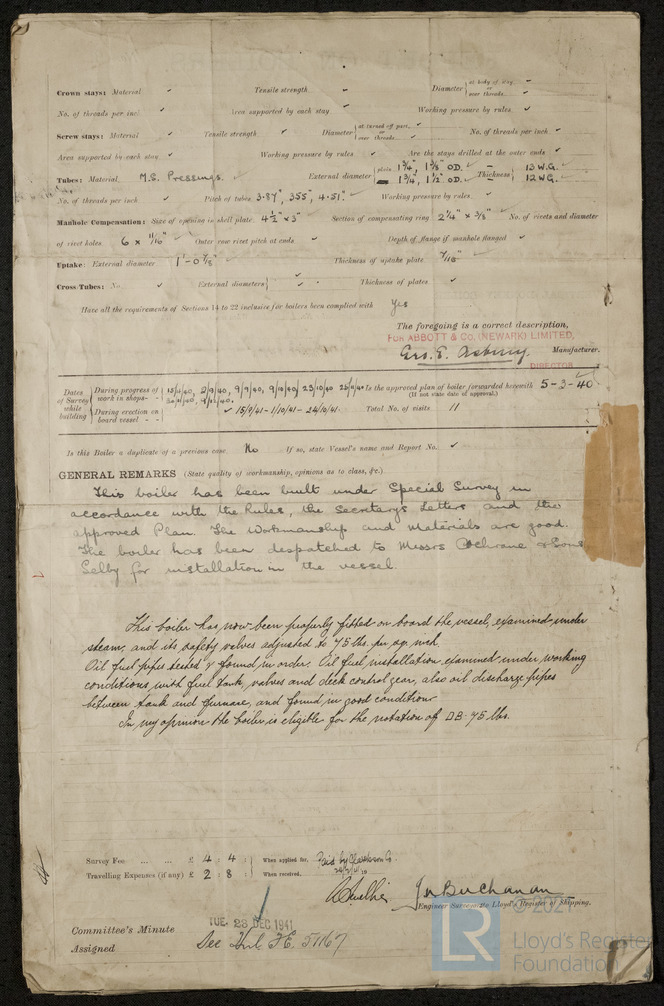 Crown stays: Material ✓ Tensile strength ✓ Diameter { at body of stay, ✓ or over threads ✓
No. of threads per inch ✓ Area supported by each stay ✓ Working pressure by rules ✓
Screw stays: Material ✓ Tensile strength ✓ Diameter { at turned off part, ✓ or over threads ✓ No. of threads per inch ✓
Area supported by each stay ✓ Working pressure by rules ✓ Are the stays drilled at the outer ends ✓
Tubes: Material M.S. Pressings. ✓ External diameter { plain 1¾", 1⅝" OD. 1¾", 1½" OD. Thickness { 13 W.G. ✓ 12 WG. ✓
No. of threads per inch ✓ Pitch of tubes 3·87", 355", 4·51". ✓ Working pressure by rules ✓
Manhole Compensation: Size of opening in shell plate 4½" x 3" ✓ Section of compensating ring 2¼" x ⅜" ✓ No. of rivets and diameter
of rivet holes 6 x 11/16" ✓ Outer row rivet pitch at ends ✓ Depth of flange if manhole flanged ✓
Uptake: External diameter 1'-0⅞" ✓ Thickness of uptake plate 7/16" ✓
Cross Tubes: No. ✓ External diameters { ✓ Thickness of plates ✓
Have all the requirements of Sections 14 to 22 inclusive for boilers been complied with Yes
The foregoing is a correct description,
FOR ABBOTT & CO. (NEWARK) LIMITED,
Geo. E. Manufacturer.
DIRECTOR
Dates of Survey while building { During progress of work in shops - - 9/9/40, 9/10/40, 23/10/40 Is the approved plan of boiler forwarded herewith 5-3-40
(If not state date of approval.)
During erection on board vessel - - ✓ 15/9/41 - 1/10/41 - 24/10/41. Total No. of visits 11
Is this Boiler a duplicate of a previous case No If so, state Vessel's name and Report No. ✓
GENERAL REMARKS (State quality of workmanship, opinions as to class, &c.)
This boiler has been built under Special Survey in
accordance with the Rules, the Secretary's Letters and the
approved Plan. The Workmanship and Materials are good.
The boiler has been despatched to Messrs Cochrane & Sons
Selby for installation in the vessel.
This boiler has now been properly fitted on board the vessel, examined under
steam, and its safety valves adjusted to 75 lbs. per sq. inch
Oil fuel pipes tested & found in order. Oil fuel installation examined under working
conditions, with fuel tank, valves and deck control gear, also oil discharge pipes
between tank and furnace, and found in good condition
In my opinion the boiler is eligible for the notation of DB-75 lbs.
Survey Fee ... ... £ 4 : 4 : When applied for,
Travelling Expenses (if any) £ 2 : 8 : When received,
Jn Buchanan
Engineer Surveyor to Lloyd's Register of Shipping.
TUE. 23 DEC 1941
Committee's Minute
Assigned See F.E.
© 2021
LR
Lloyd's Register
Foundation